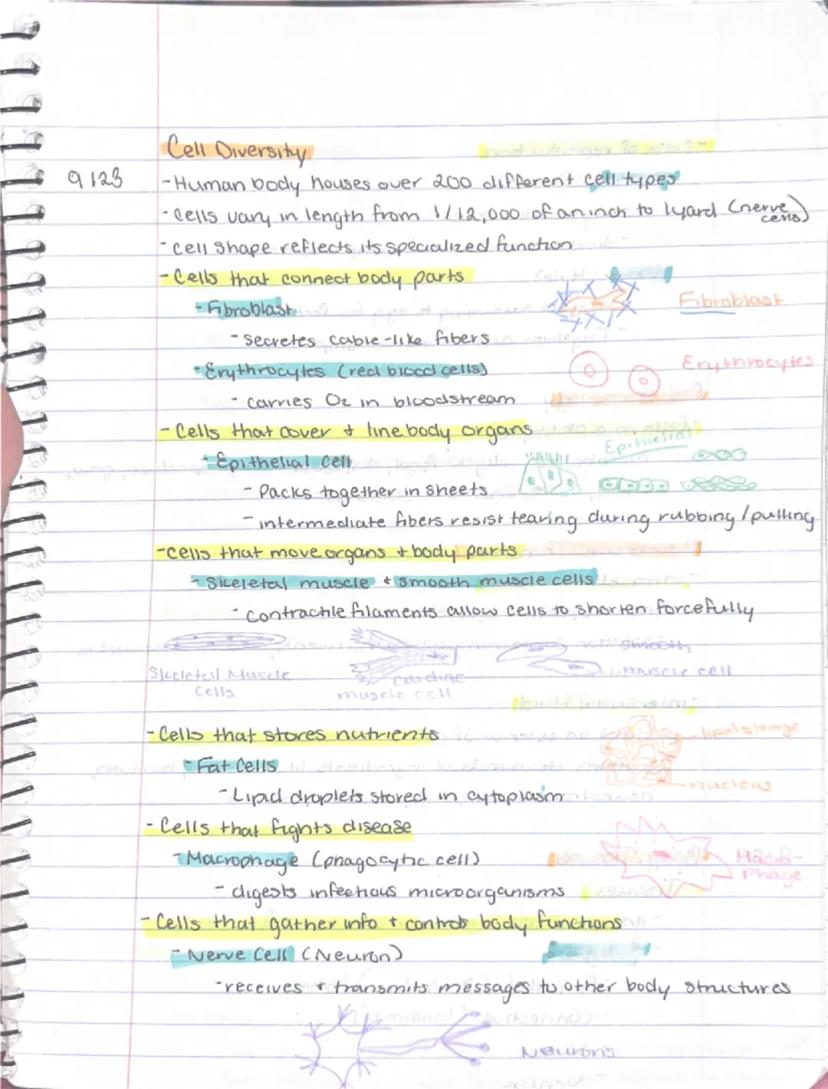 Cell Diversity
9123 - Human body houses over 200 different cell types
- Cells vary in length from 1/12,000 of an inch to 1 yard (nerve cells)
- cell shape reflects its specialized function
- Cells that connect body parts
- Fibroblast
Fibroblast
- secretes cable-like fibers
- Erythrocytes (red blood cells)
Erythrocytes
- carries O2 in bloodstream
- Cells that cover + line body organs
Epithelial
- Epithelial cell
- Packs together in sheets
- intermediate fibers resist tearing during rubbing/pulling
- cells that move organs + body parts
- Skeletal muscle + smooth muscle cells
- contractile filaments allow cells to shorten forcefully
Skeletal Muscle Cells
cardiac muscle cell
smooth muscle cell
- Cells that stores nutrients
lipid storage
- Fat Cells
nucleus
- Lipid droplets stored in cytoplasm
- Cells that fights disease
- Macrophage (phagocytic cell)
Macro-
phage
- digests infectious microorganisms
- Cells that gather info + control body functions
- Nerve Cell (Neuron)
- receives + transmits messages to other body structures
Neurons